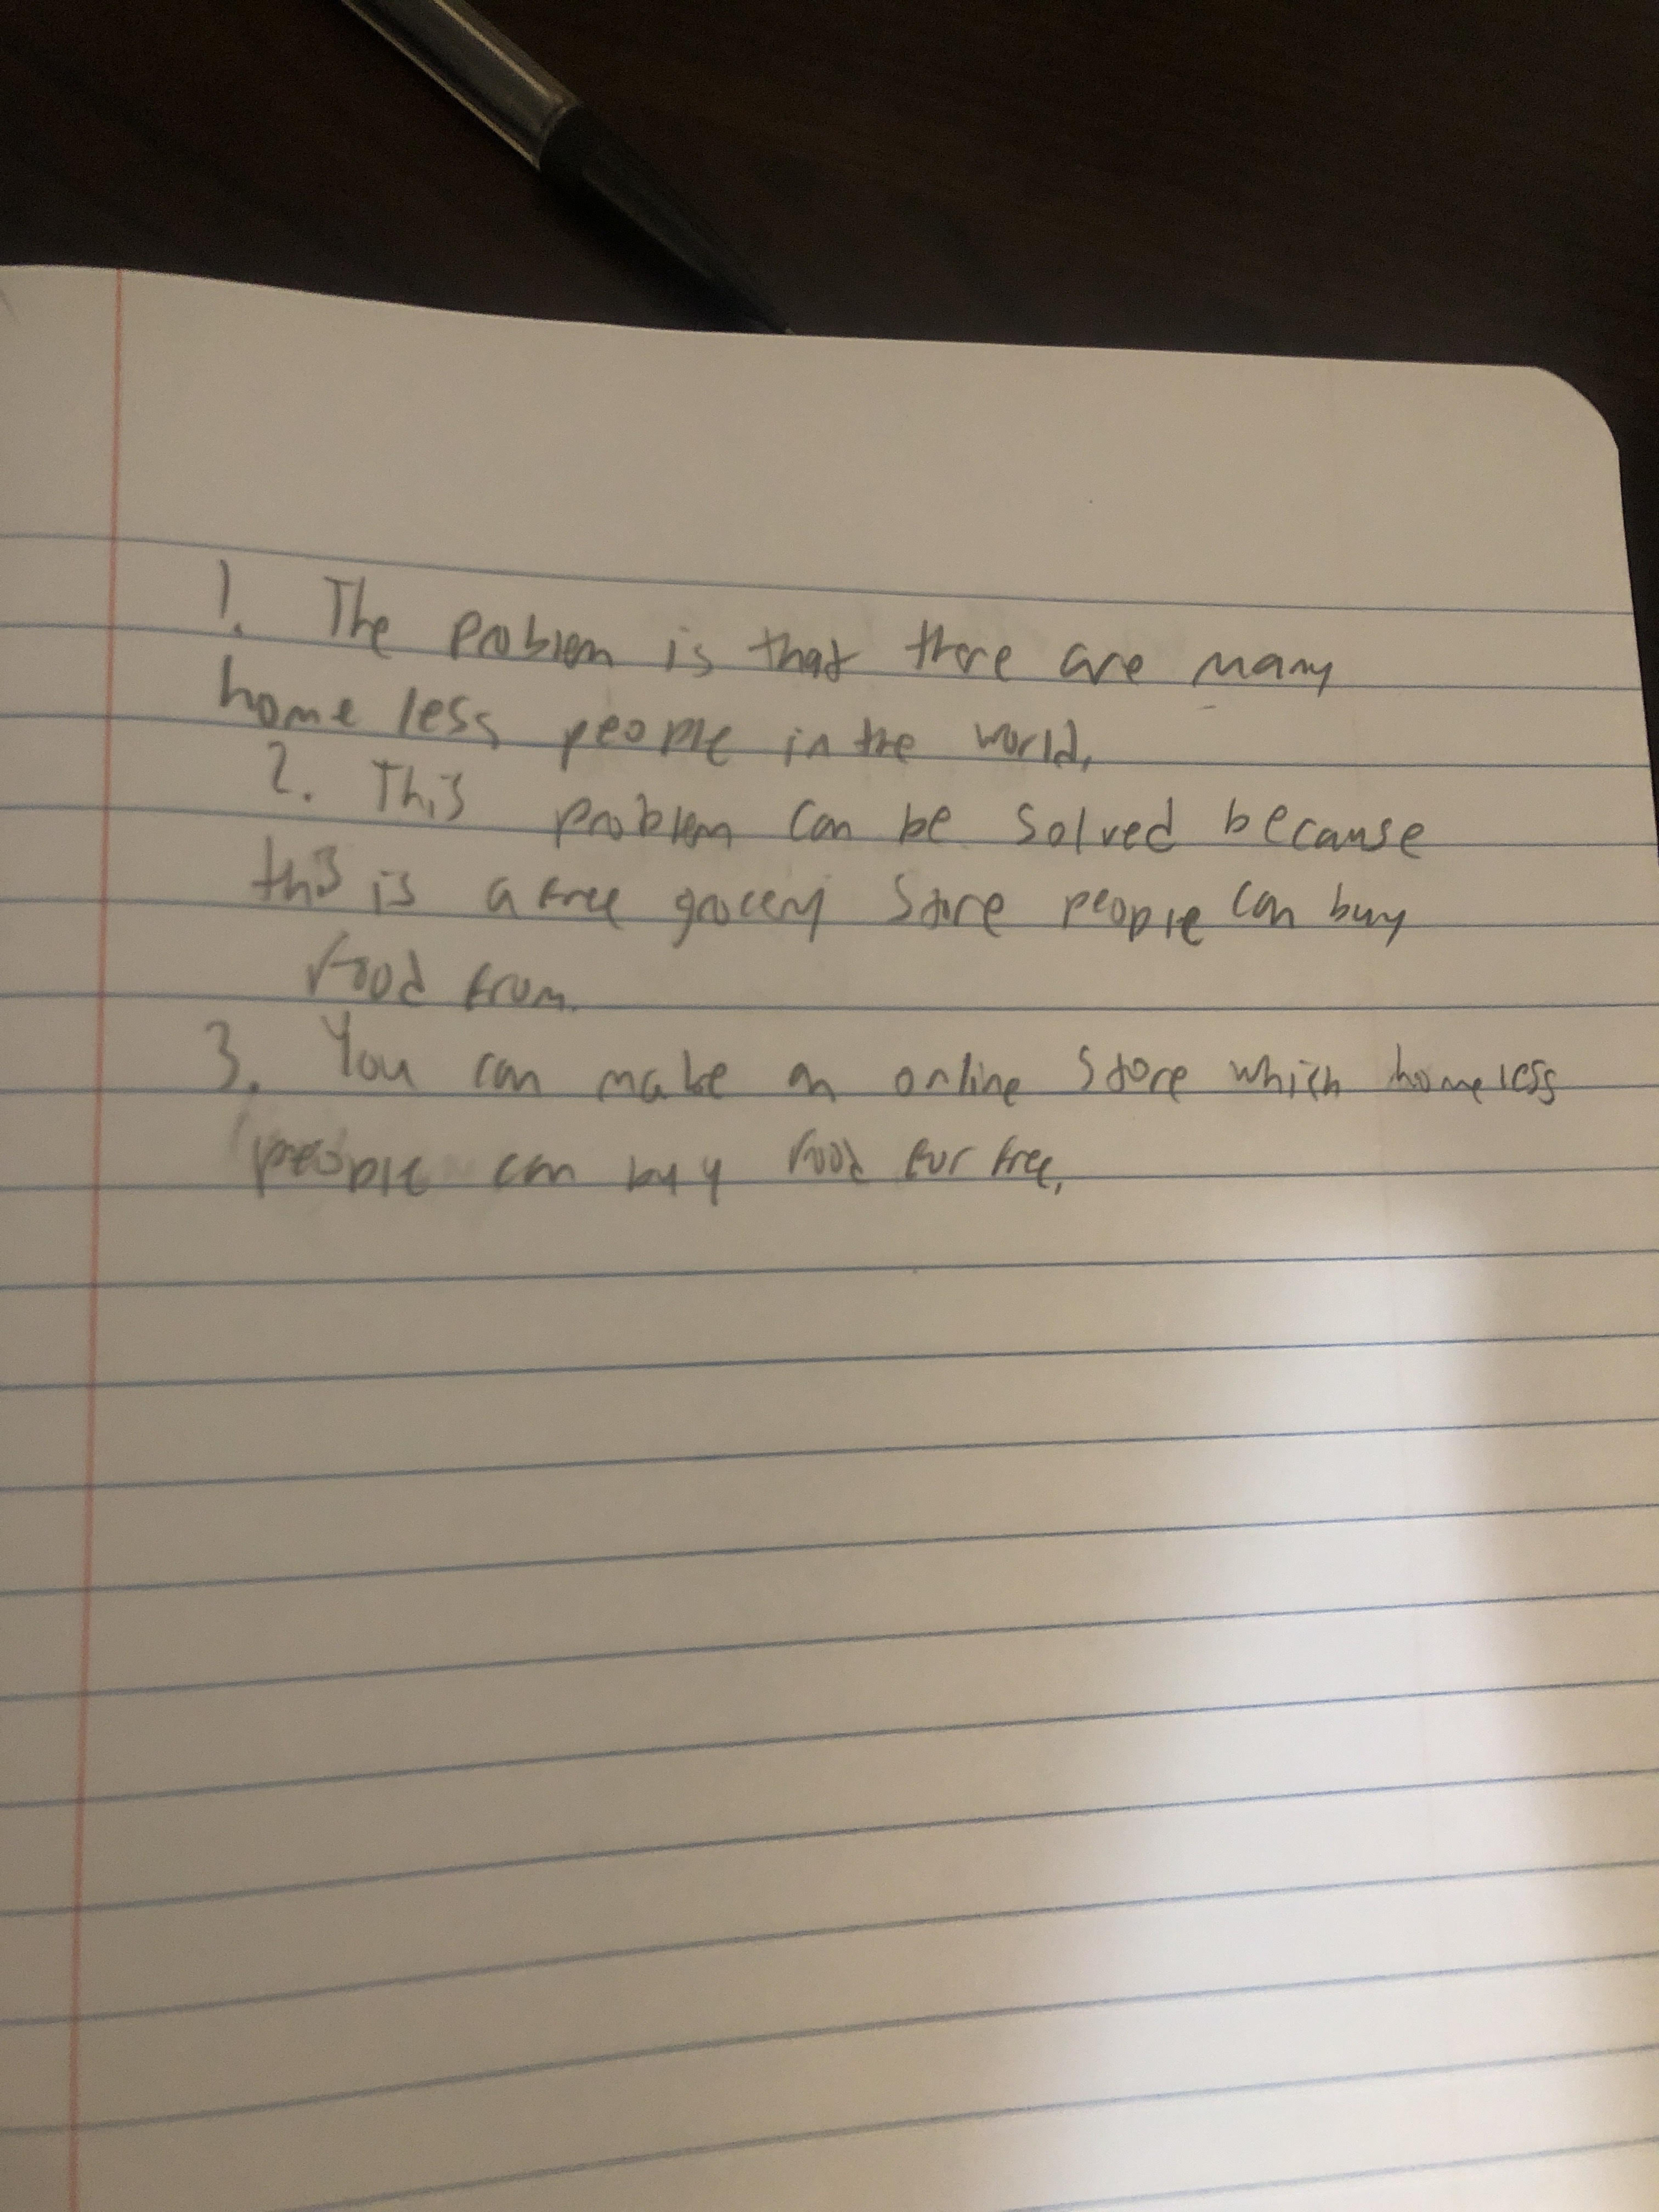 1. The problem is that there are many
home less people in the world.
2. This problem can be solved because
this is a free grocery store people can buy
food from.
3. You can make an online store which homeless
people can buy food for free.